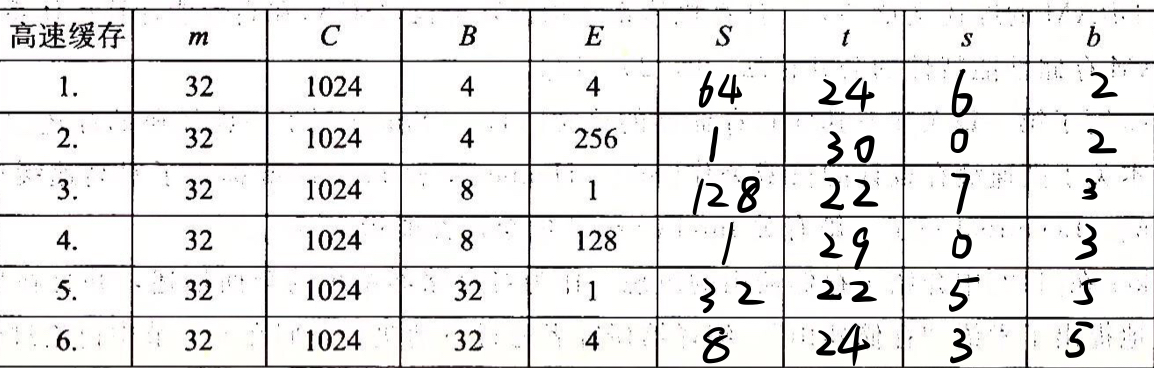 高速缓存 m C B E S t s b
1. 32 1024 4 4 64 24 6 2
2. 32 1024 4 256 1 30 0 2
3. 32 1024 8 1 128 22 7 3
4. 32 1024 8 128 1 29 0 3
5. 32 1024 32 1 32 22 5 5
6. 32 1024 32 4 8 24 3 5